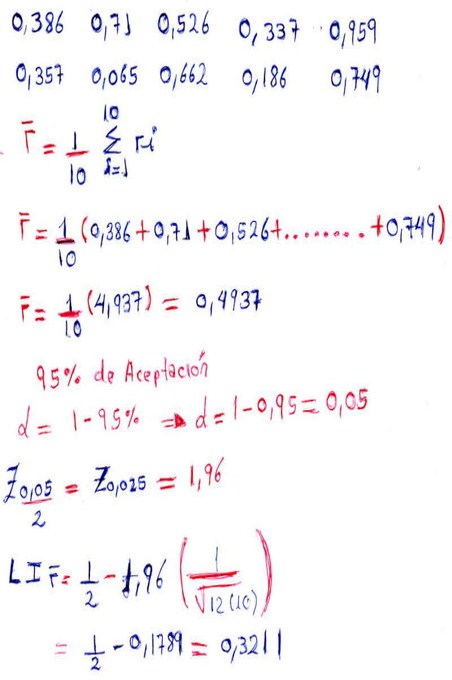 0,386 0,71 0,526 0,337 0,959
0,357 0,065 0,662 0,186 0,749
r̄ = 1/10 10 Σ i=1 ri
r̄ = 1/10 (0,386+0,71+0,526+........+0,749)
r̄ = 1/10 (4,937) = 0,4937
95% de Aceptación
d = 1-95% ⇒ d = 1-0,95 = 0,05
Z0,05/2 = Z0,025 = 1,96
LI r̄ = 1/2 - 1,96 (1/√12(10))
= 1/2 - 0,1789 = 0,3211